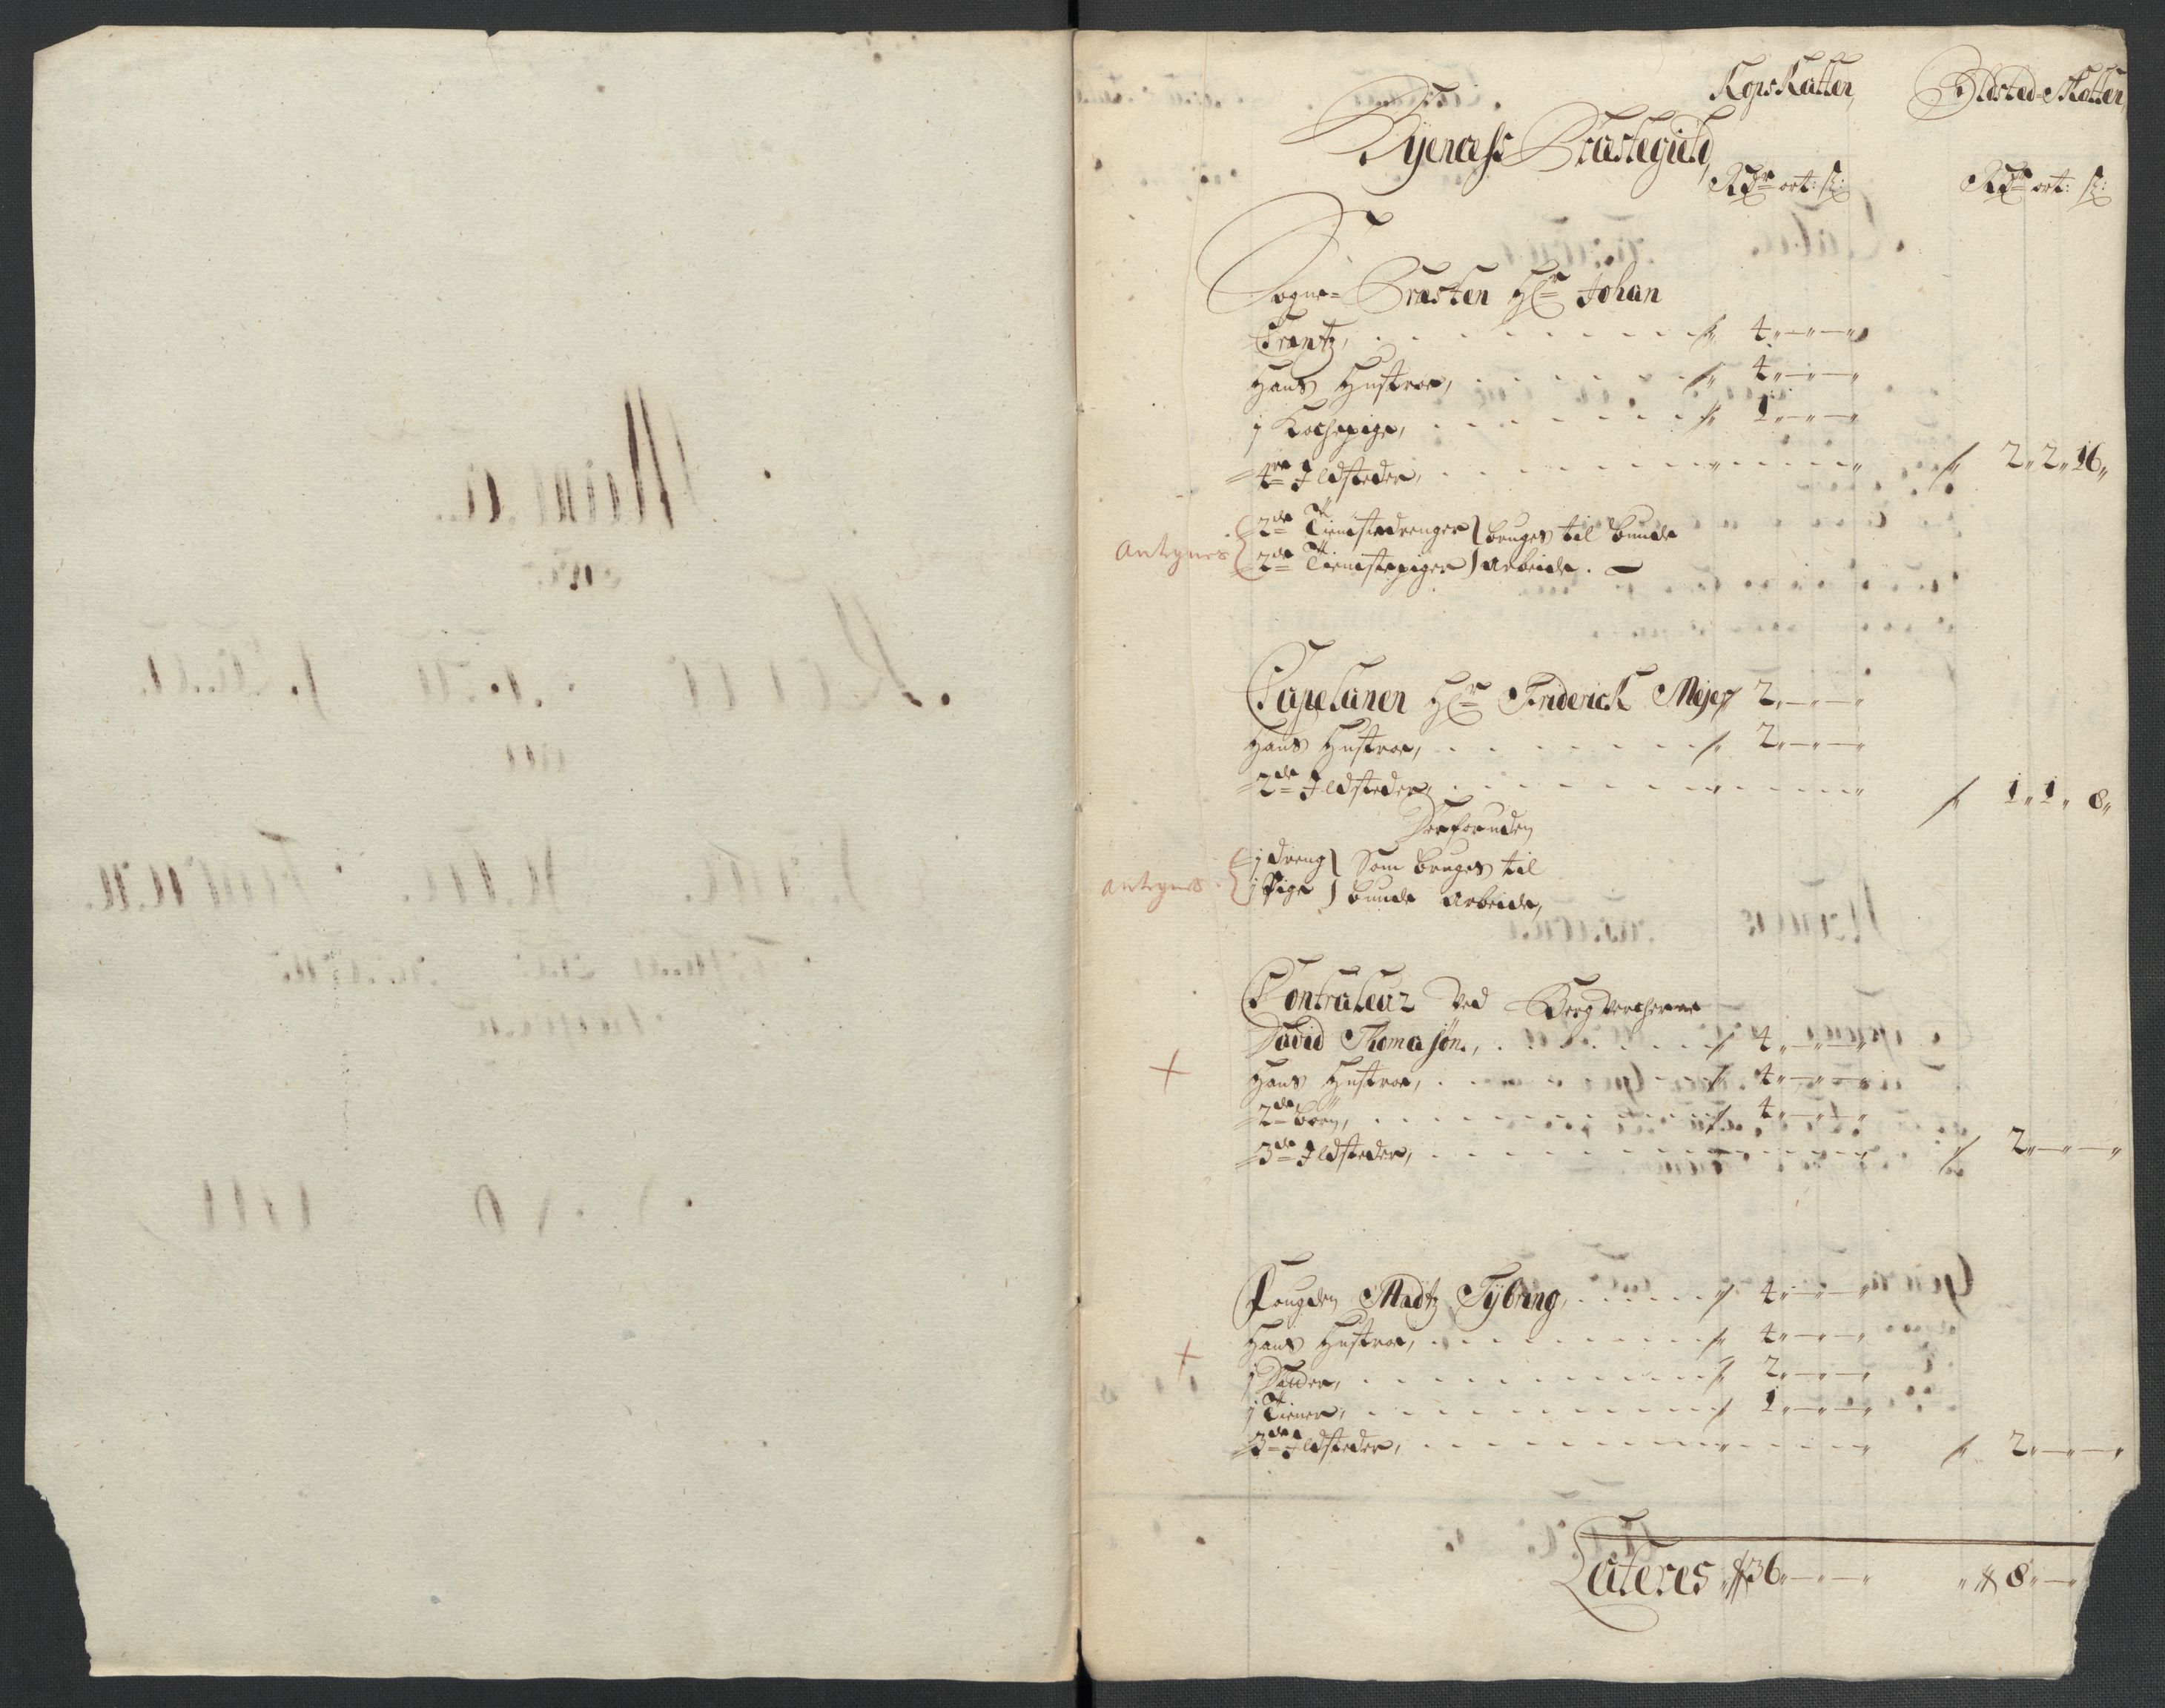 KopsKatten, Ildsted-Skatten,
Rycness Præstegield,
Rdr ort: s: Rdr ort: s:
Sogne-Præsten Hr Johan
Frantz, . . . . . . . 4„—„—„
Hans Hustroe, . . . . . 4„—„—„
j Kochepige, . . . . . . 1„—„—„
4re Ildsteder, . . . . . . 2„2„16„
Antegnes 2de Tienistedrenger } bruges til bunde
2de Tienistepiger } arbeide. —
Capelanen Hr Friderick Mejer 2„—„—„
Hans Hustroe, . . . . . . 2„—„—„
2de Ildsteder, . . . . . . 1„1„8„
Derforuden
Antegnes j dreng } Som bruges til
j Pige } bunde arbeide,
Contraleur Ved Bergverckerne
David Thomasøn, . . . . . 4„—„—„
+ Hans Hustroe, . . . . . 4„—„—„
2de børn, . . . . . . . 4„—„—„
3de Ildsteder, . . . . . . 2„—„—„
Fougden Madtz Tybring, . . . . 4„—„—„
+ Hans Hustroe, . . . . . . 4„—„—„
j Datter, . . . . . . . 2„—„—„
j Tiener, . . . . . . . 1„—„—„
3de Ildsteder, . . . . . . 2„—„—„
Lateres 36„—„—„ 8„—„